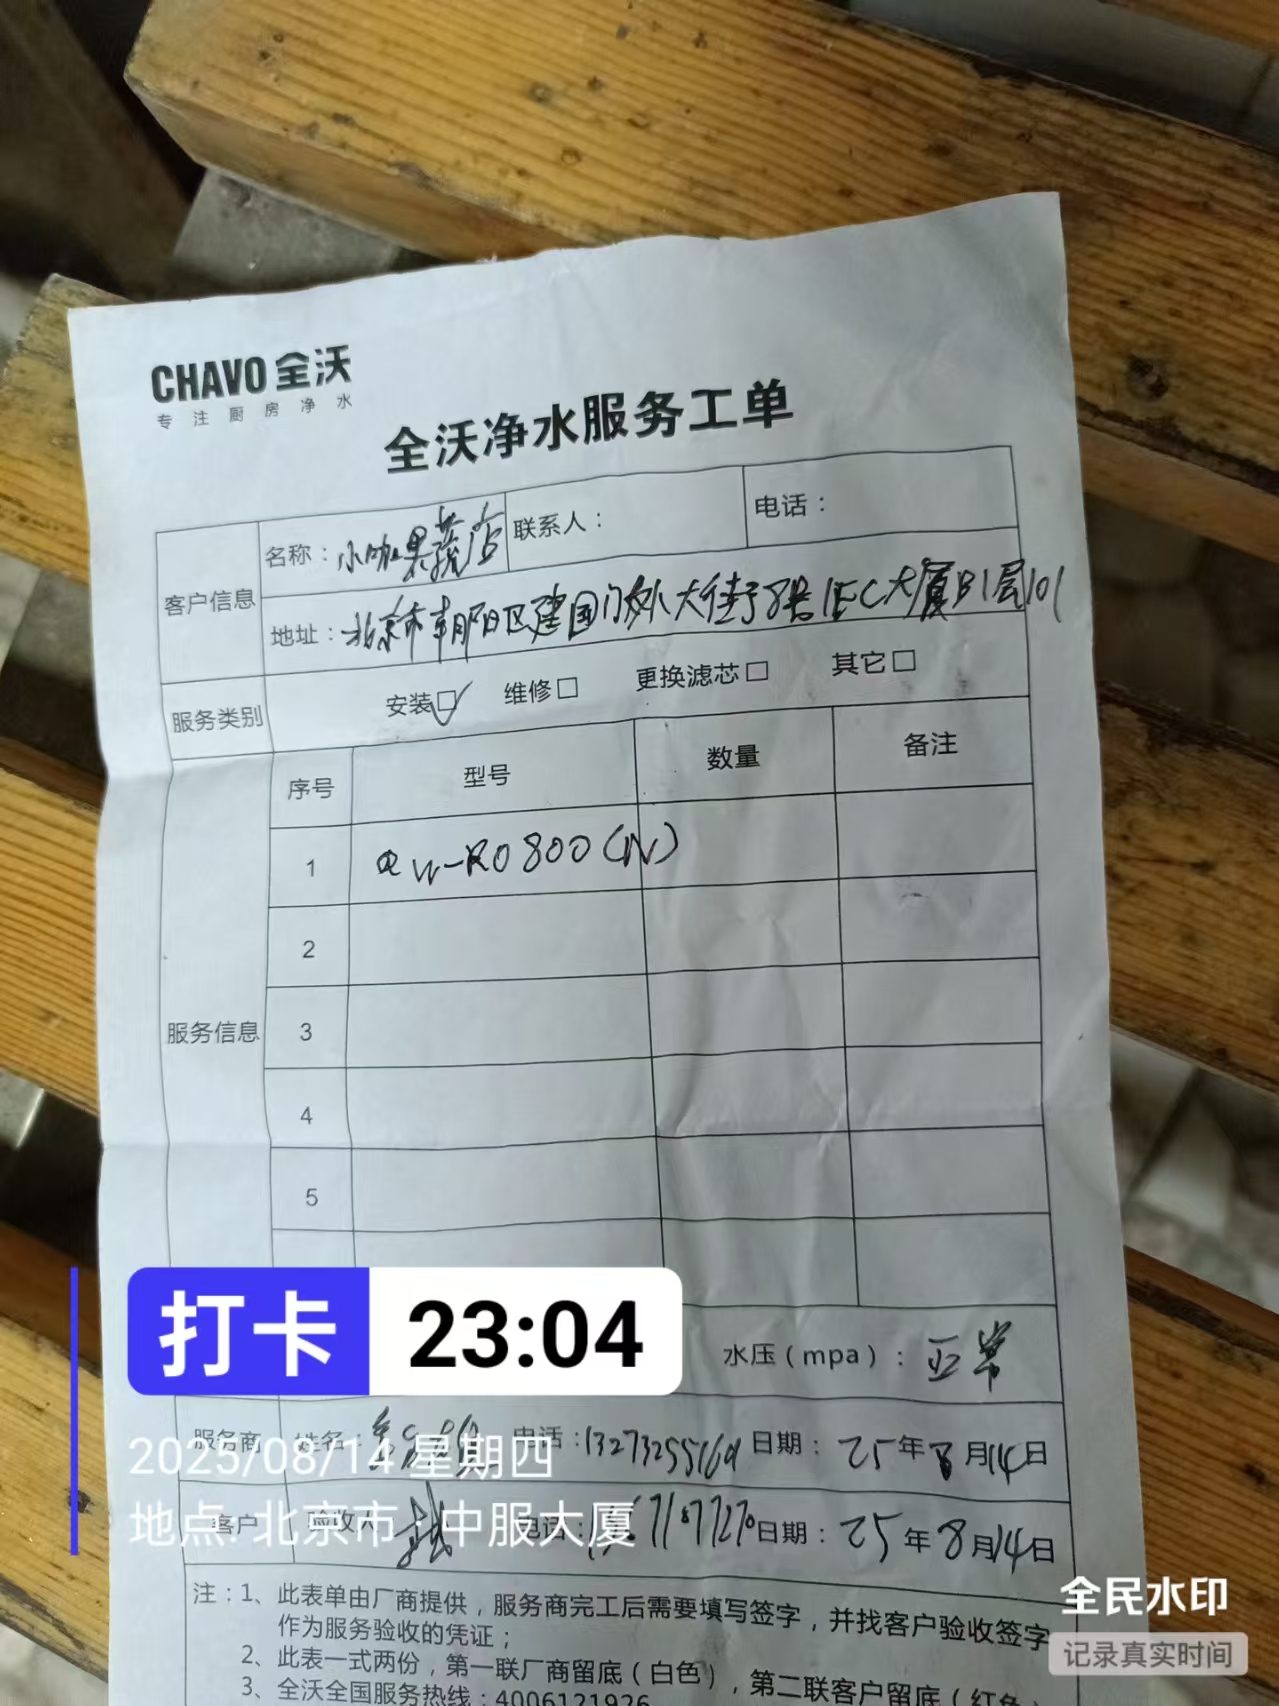 CHAVO 全沃
专注厨房净水
全沃净水服务工单
客户信息 名称：小咖果蔬店 联系人： 电话：
地址：北京市朝阳区建国门外大街8号IFC大厦B1层101
服务类别 安装☑ 维修□ 更换滤芯□ 其它□
服务信息 序号 型号 数量 备注
1 QW-RO800(W)
2
3
4
5
打卡 23:04
水压（mpa）：正常
服务商 姓名： 电话：13273255169 日期：25年8月14日
2025/08/14 星期四
客户 验收人 电话： 日期：25年8月14日
地点：北京市·中服大厦
注：1、此表单由厂商提供，服务商完工后需要填写签字，并找客户验收签字
作为服务验收的凭证；
2、此表一式两份，第一联厂商留底（白色），第二联客户留底（红色
3、全沃全国服务热线：4006121926
全民水印
记录真实时间